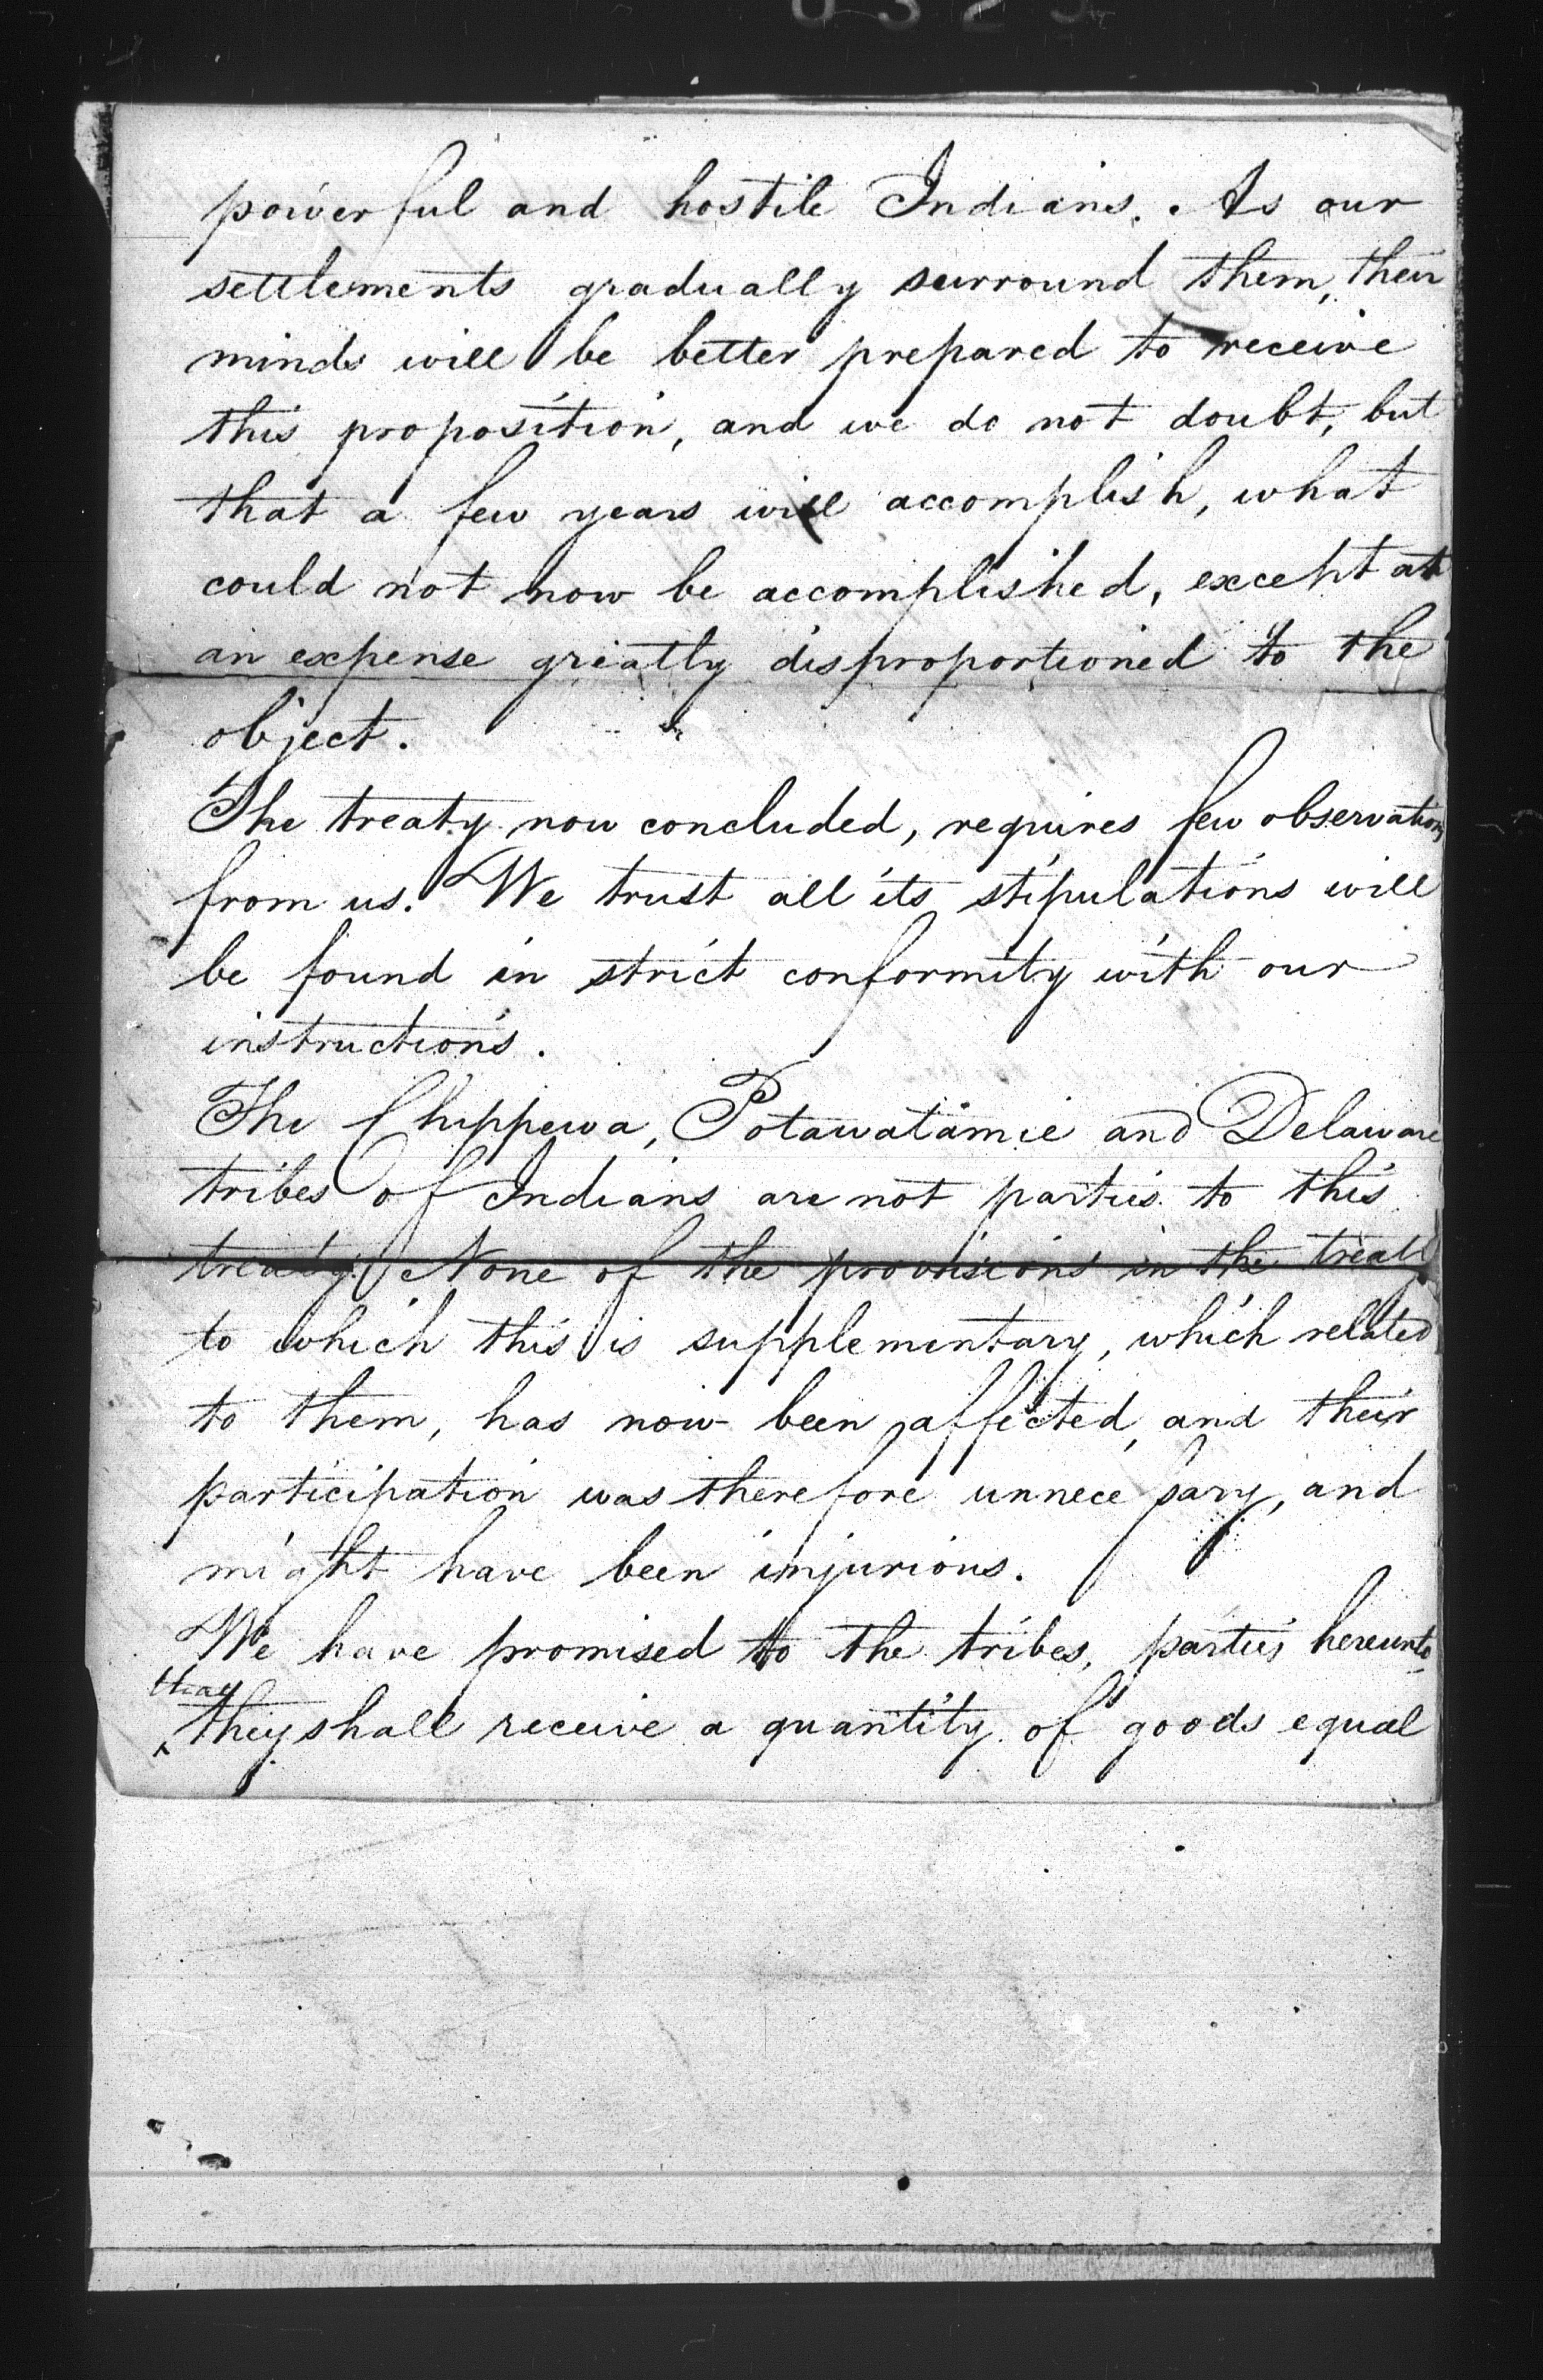 powerful and hostile Indians. As our
settlements gradually surround them, their
minds will be better prepared to receive
this proposition, and we do not doubt, but
that a few years will accomplish, what
could not now be accomplished, except at
an expense greatly disproportioned to the
object.
The treaty now concluded, requires few observations
from us. We trust all its stipulations will
be found in strict conformity with our
instructions.
The Chippewa, Potawatamie and Delaware
tribes of Indians are not parties to this
treaty. None of the provisions in the treaty
to which this is supplementary, which related
to them, has now been affected, and their
participation was therefore unnecessary, and
might have been injurious.
We have promised to the tribes, parties hereunto
that
they shall receive a quantity of goods equal